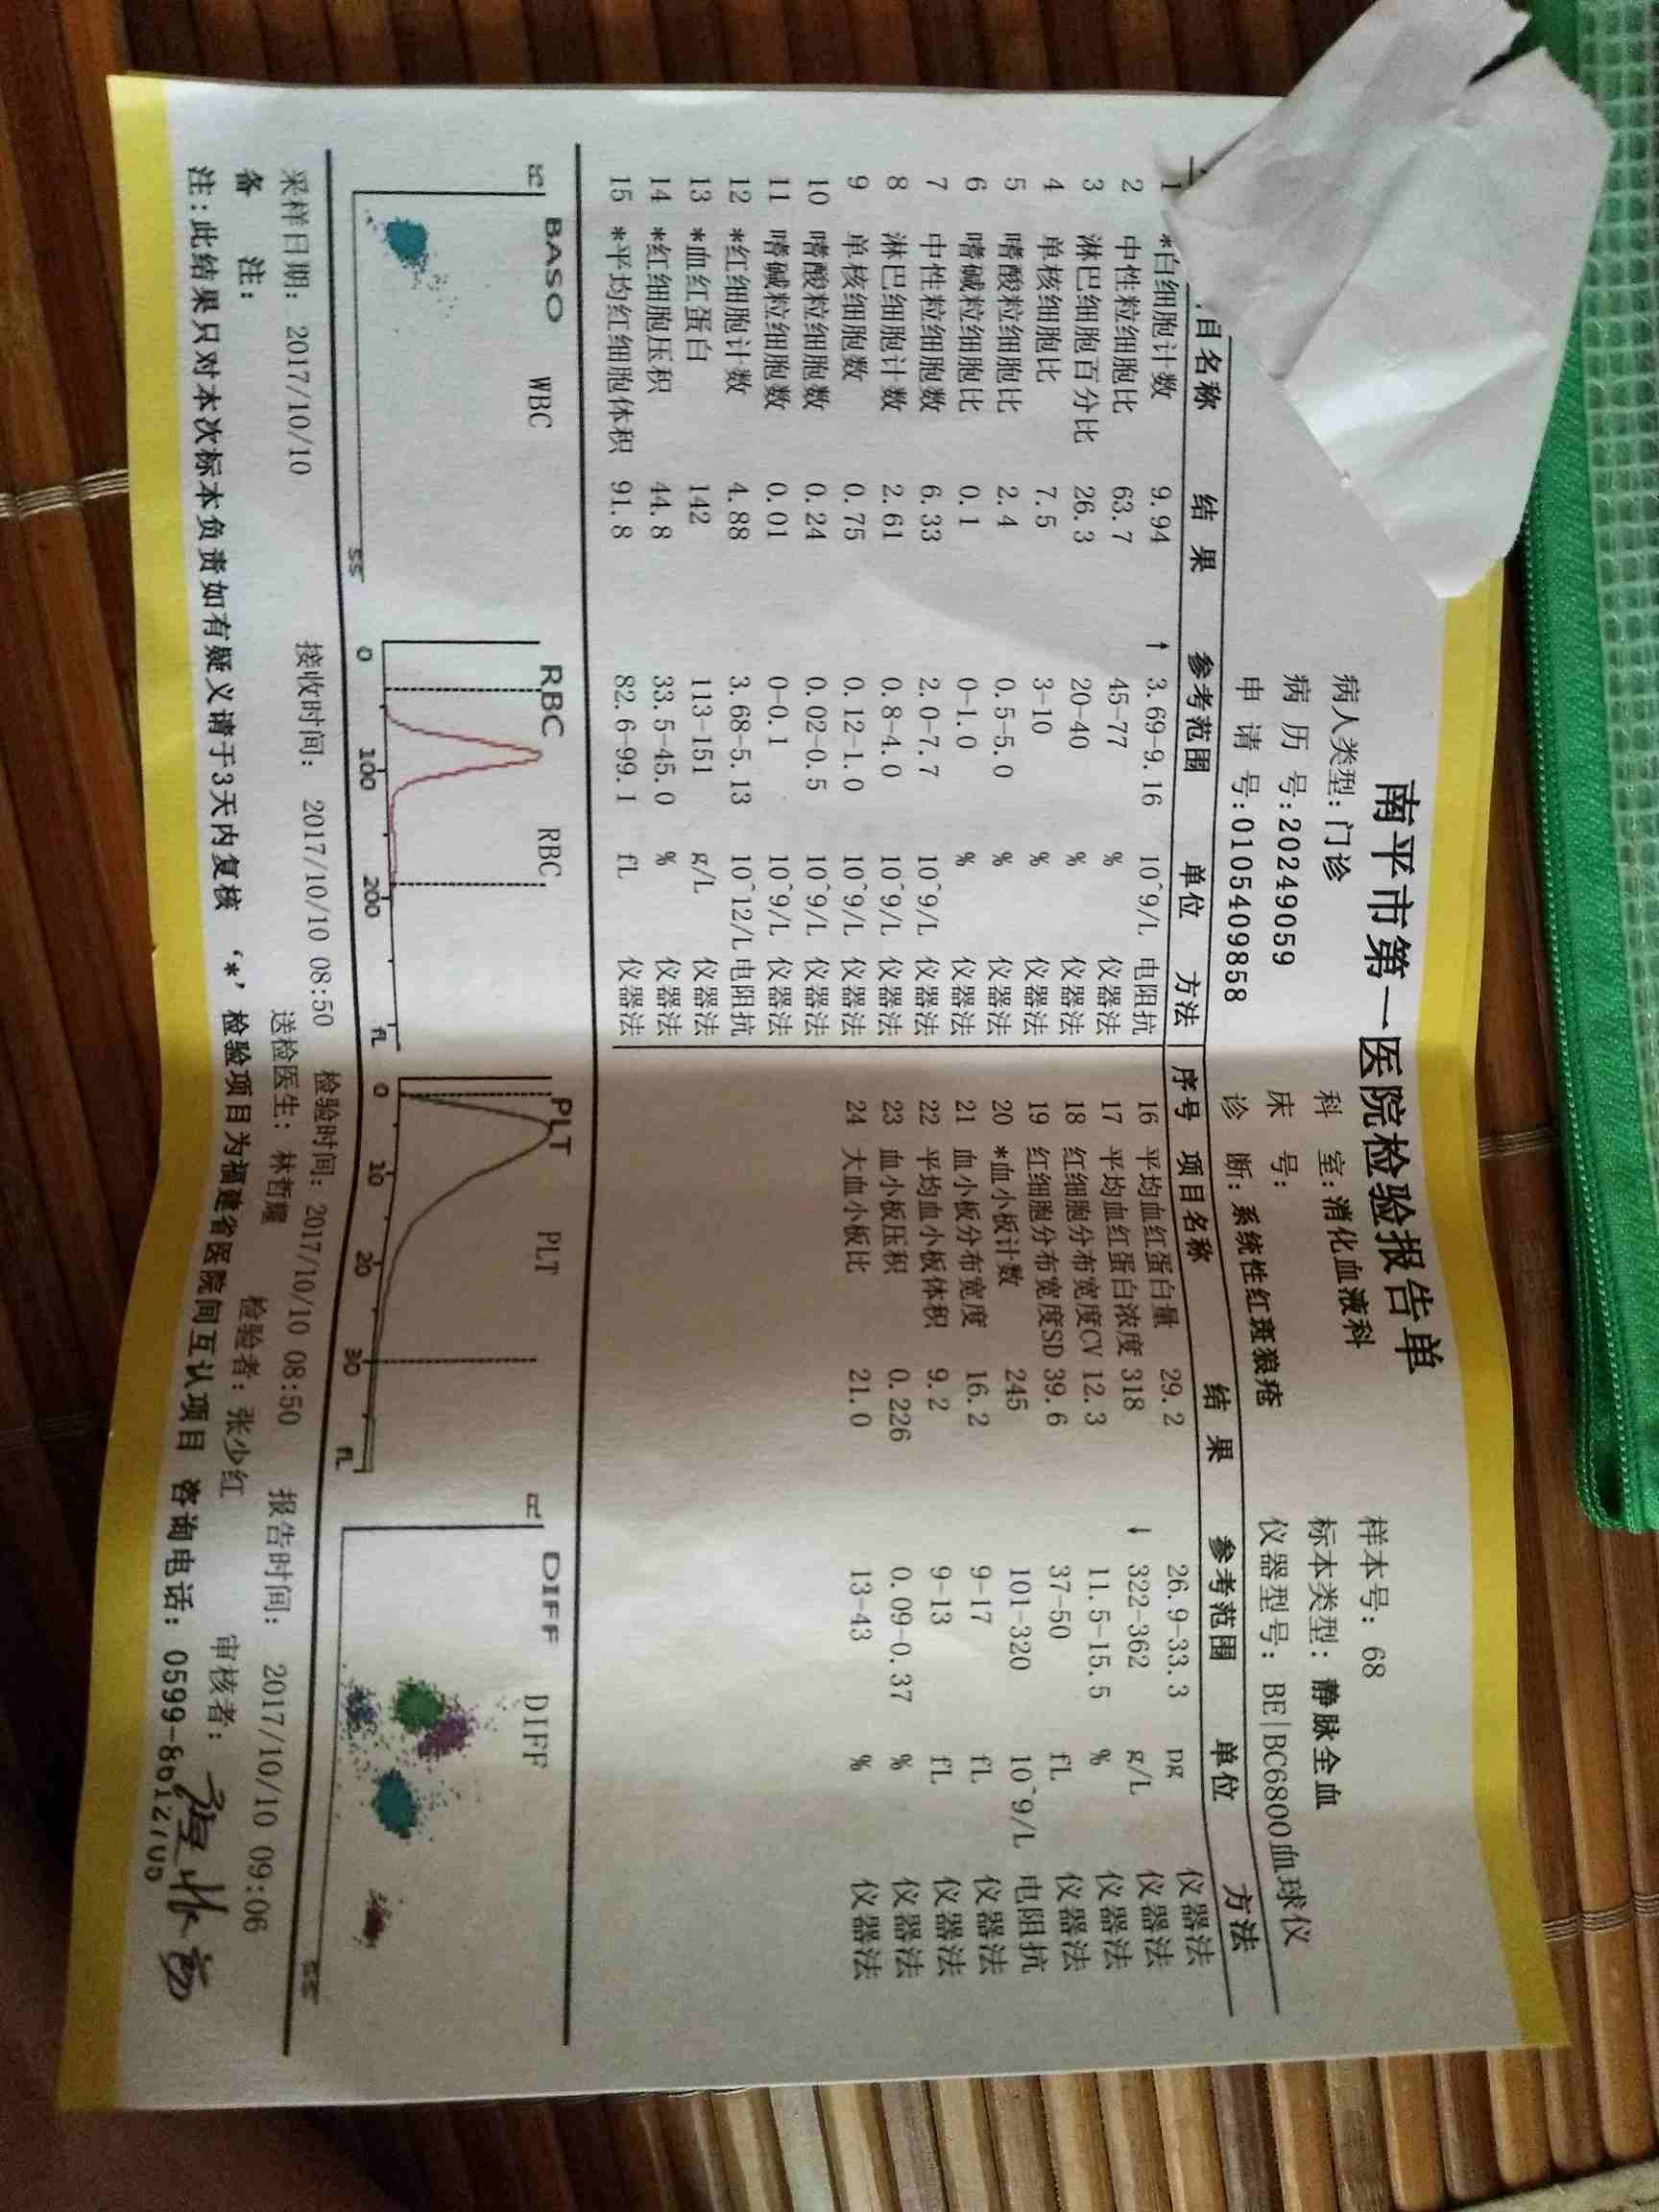 南平市第一医院检验报告单
病人类型:门诊 科 室:消化血液科 样本号: 68
病 历 号:202490590 床 号: 标本类型: 静脉全血
申 请 号:0105409858 诊 断:系统性红斑狼疮 仪器型号: BE|BC6800血球仪
目名称 结 果 参考范围 单位 方法 序号 项目名称 结 果 参考范围 单位 方法
1 *白细胞计数 9.94 ↑ 3.69-9.16 10^9/L 电阻抗 16 平均血红蛋白量 29.2 26.9-33.3 pg 仪器法
2 中性粒细胞比 63.7 45-77 % 仪器法 17 平均血红蛋白浓度 318 ↓ 322-362 g/L 仪器法
3 淋巴细胞百分比 26.3 20-40 % 仪器法 18 红细胞分布宽度CV 12.3 11.5-15.5 % 仪器法
4 单核细胞比 7.5 3-10 % 仪器法 19 红细胞分布宽度SD 39.6 37-50 fL 仪器法
5 嗜酸粒细胞比 2.4 0.5-5.0 % 仪器法 20 *血小板计数 245 101-320 10^9/L 电阻抗
6 嗜碱粒细胞比 0.1 0-1.0 % 仪器法 21 血小板分布宽度 16.2 9-17 fL 仪器法
7 中性粒细胞数 6.33 2.0-7.7 10^9/L 仪器法 22 平均血小板体积 9.2 9-13 fL 仪器法
8 淋巴细胞计数 2.61 0.8-4.0 10^9/L 仪器法 23 血小板压积 0.226 0.09-0.37 % 仪器法
9 单核细胞数 0.75 0.12-1.0 10^9/L 仪器法 24 大血小板比 21.0 13-43 % 仪器法
10 嗜酸粒细胞数 0.24 0.02-0.5 10^9/L 仪器法
11 嗜碱粒细胞数 0.01 0-0.1 10^9/L 仪器法
12 *红细胞计数 4.88 3.68-5.13 10^12/L 电阻抗
13 *血红蛋白 142 113-151 g/L 仪器法
14 *红细胞压积 44.8 33.5-45.0 % 仪器法
15 *平均红细胞体积 91.8 82.6-99.1 fL 仪器法
BASO WBC RBC RBC PLT PLT DIFF DIFF
SS 0 100 200 fL 0 10 20 30 fL SS
采样日期: 2017/10/10 接收时间: 2017/10/10 08:50 检验时间: 2017/10/10 08:50 报告时间: 2017/10/10 09:06
备 注: 送检医生: 林哲耀 检验者: 张少红 审核者:
注:此结果只对本次标本负责如有疑义请于3天内复核 '*' 检验项目为福建省医院间互认项目 咨询电话: 0599-8612705